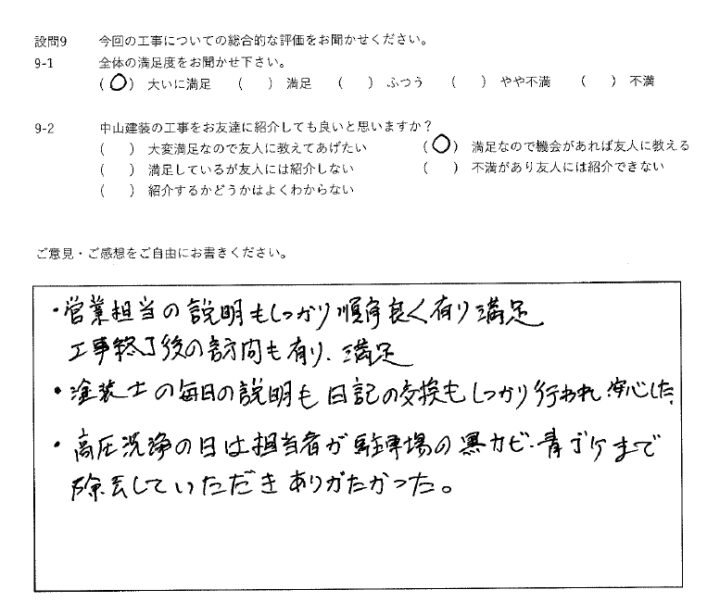 設問9 今回の工事についての総合的な評価をお聞かせください。
9-1 全体の満足度をお聞かせ下さい。
(○) 大いに満足 ( ) 満足 ( ) ふつう ( ) やや不満 ( ) 不満
9-2 中山建装の工事をお友達に紹介しても良いと思いますか?
( ) 大変満足なので友人に教えてあげたい (○) 満足なので機会があれば友人に教える
( ) 満足しているが友人には紹介しない ( ) 不満があり友人には紹介できない
( ) 紹介するかどうかはよくわからない
ご意見・ご感想をご自由にお書きください。
・営業担当の説明もしっかり順序良く有り満足
工事終了後の訪問も有り、満足
・塗装士の毎日の説明も日記の交換もしっかり行われ安心した
・高圧洗浄の日は担当者が駐車場の黒カビ・青ゴケまで
除去していただきありがたかった。